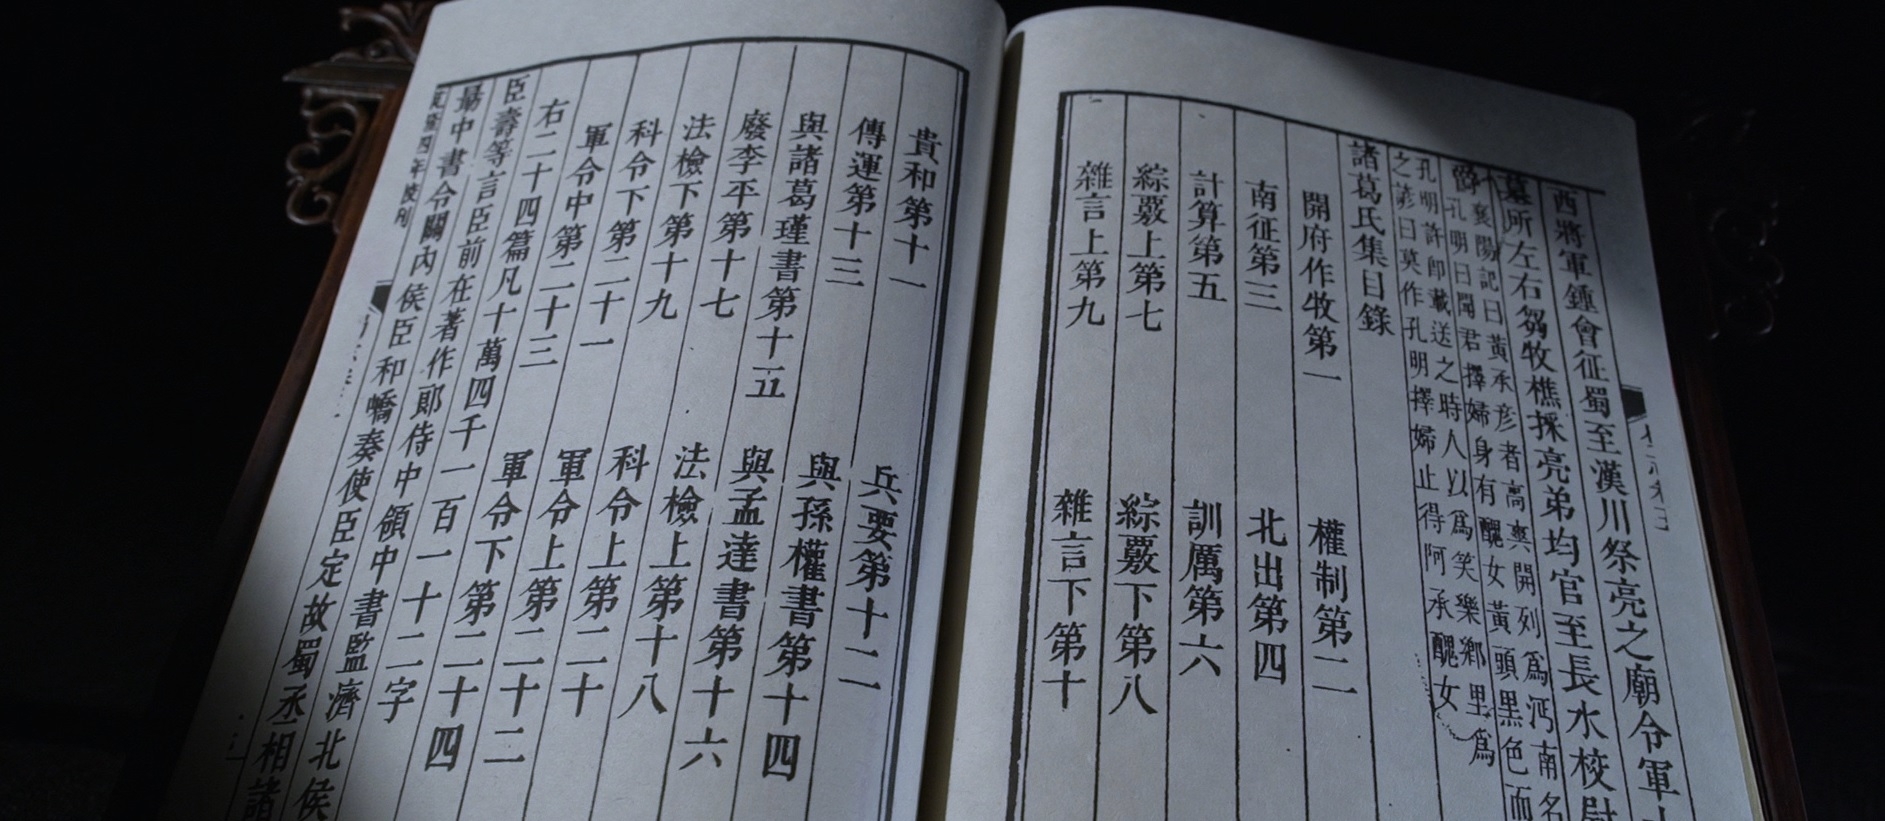 西將軍鍾會征蜀至漢川祭亮之廟令軍
墓所左右芻牧樵採亮弟均官至長水校尉
襄陽記曰黃承彥者高爽開列爲沔南名
孔明曰聞君擇婦身有醜女黃頭黑色而
孔明許即載送之時人以爲笑樂鄉里爲
之諺曰莫作孔明擇婦止得阿承醜女
諸葛氏集目錄
開府作牧第一 權制第二
南征第三 北出第四
計算第五 訓厲第六
綜覈上第七 綜覈下第八
雜言上第九 雜言下第十
貴和第十一 兵要第十二
傳運第十三 與孫權書第十四
與諸葛瑾書第十五 與孟達書第十六
廢李平第十七 法檢上第十八
法檢下第十九 科令上第二十
科令下第二十一 軍令上第二十二
軍令中第二十三 軍令下第二十四
右二十四篇凡十萬四千一百一十二字
臣壽等言臣前在著作郎侍中領中書監濟北侯
臣荀
勗中書令關內侯臣和嶠奏使臣定故蜀丞相諸